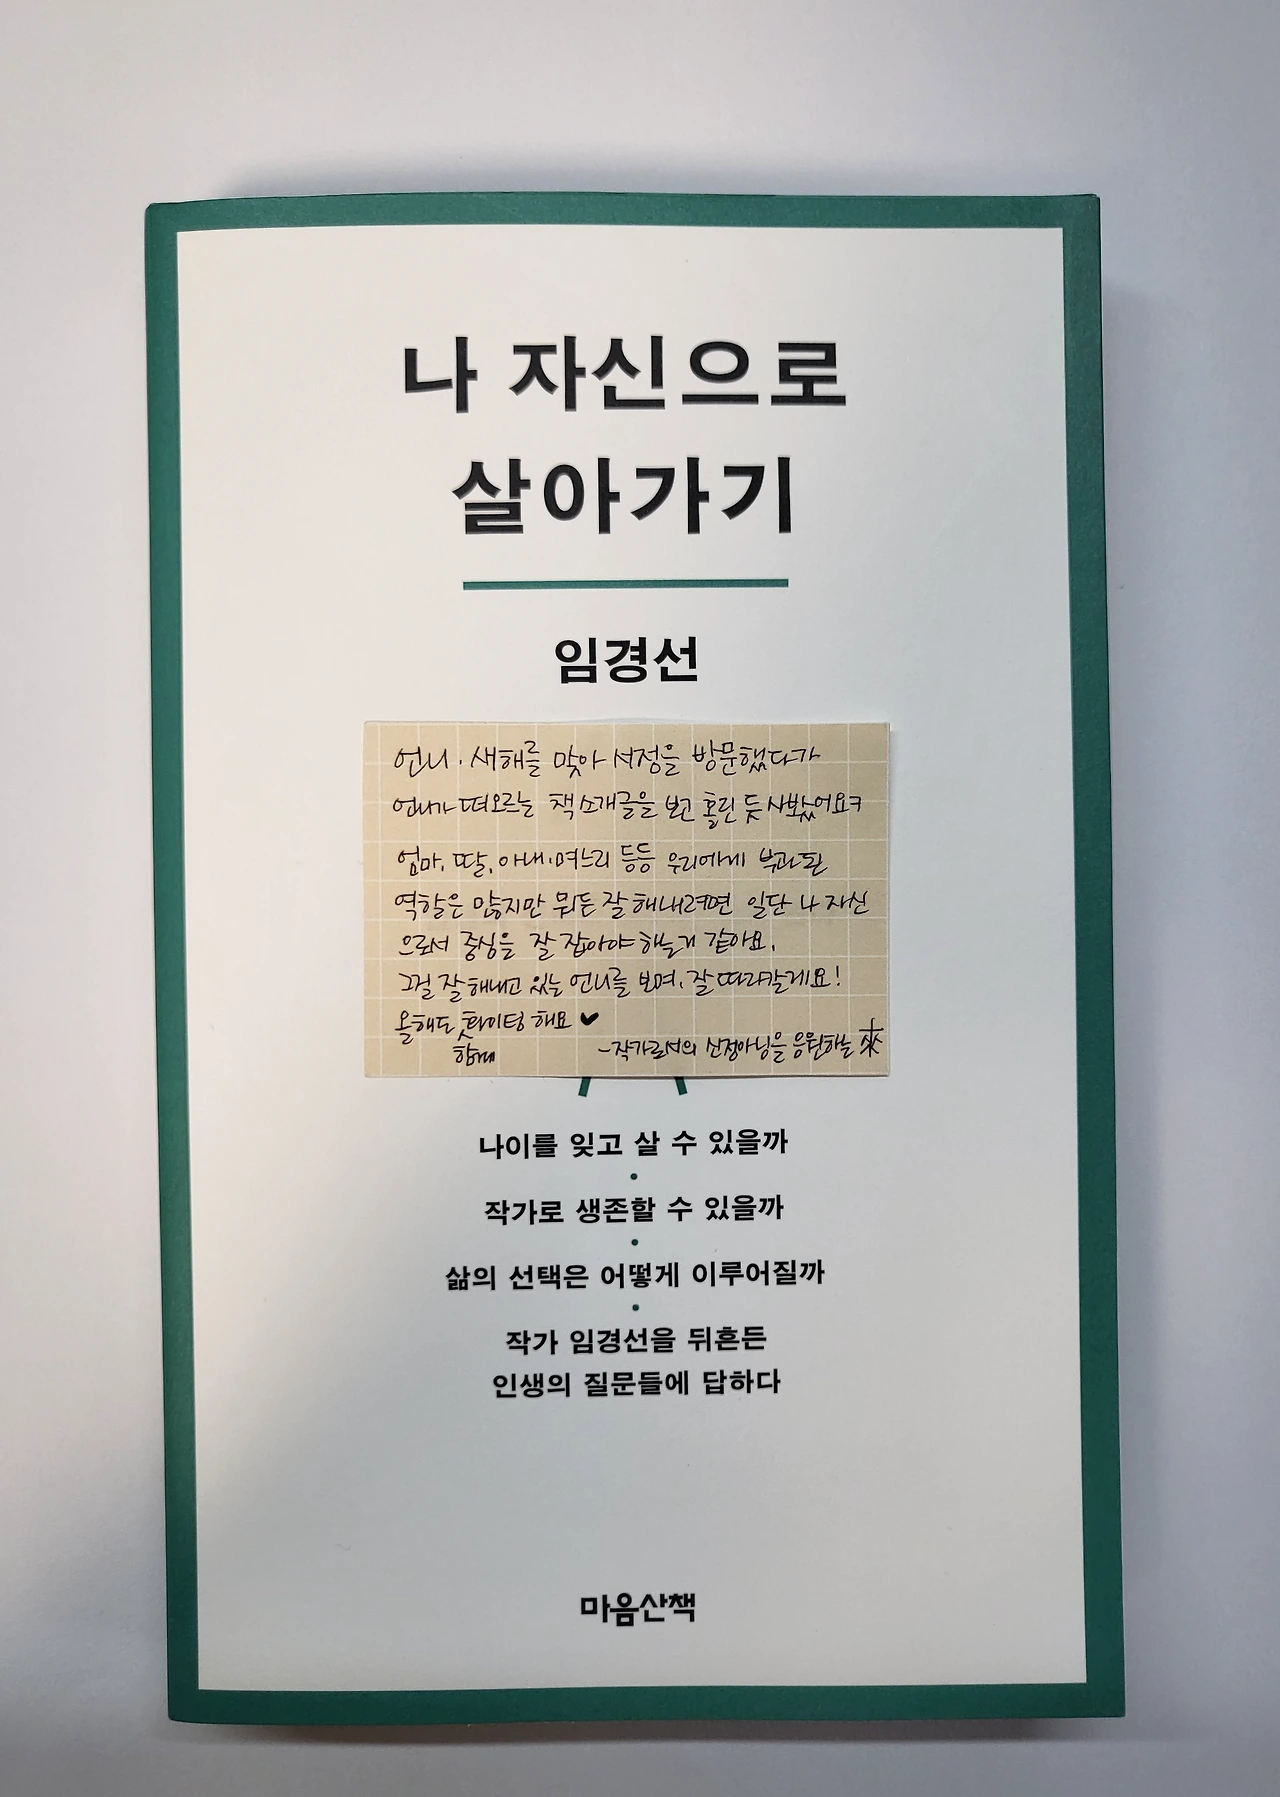 나 자신으로
살아가기
임경선
언니. 새해를 맞아 서점을 방문했다가
언니가 떠오르는 책 소개글을 보고 홀린 듯 사봤어요ㅋ
엄마, 딸, 아내, 며느리 등등 우리에게 부과된
역할은 많지만 뭐든 잘 해내려면 일단 나 자신
으로서 중심을 잘 잡아야 하는거 같아요.
그걸 잘 해내고 있는 언니를 보며, 잘 따라갈게요!
올해도 화이팅 해요 ♥
함께
-작가로서의 선정아님을 응원하는 來
나이를 잊고 살 수 있을까
작가로 생존할 수 있을까
삶의 선택은 어떻게 이루어질까
작가 임경선을 뒤흔든
인생의 질문들에 답하다
마음산책